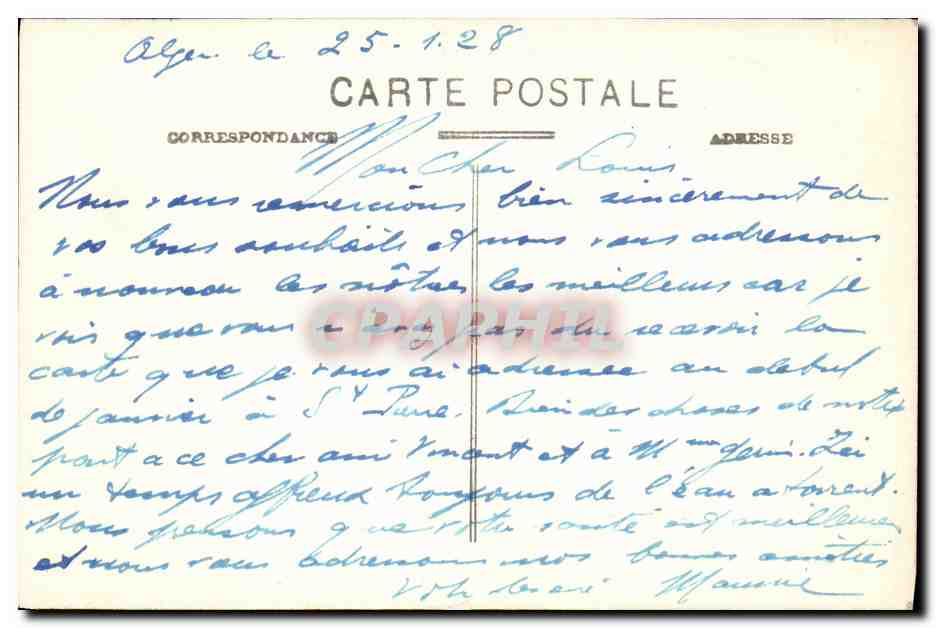 Alger le 25-1.28
CARTE POSTALE
CORRESPONDANCE ADRESSE
Mon cher Louis
Nous vous remercions bien sincèrement de
vos bons souhaits et nous vous adressons
à nouveau les nôtres les meilleurs car je
vois que vous n'avez pas du recevoir la
carte que je vous ai adressée au debut
de janvier à St Pierre. Bien des choses de notre
part a ce cher ami Vincent et à Mme . Ici
un temps affreux toujours de l'eau a torrent.
Nous pensons que votre santé est meilleure
et nous vous adressons nos bonnes amitiés
Maurice
CPAPHIL